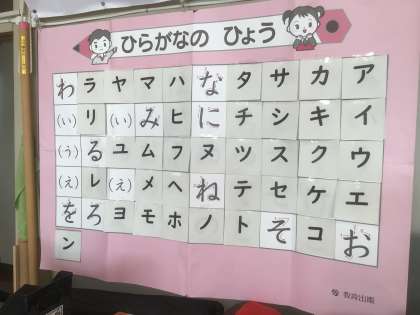 ひらがなの ひょう
アイウエお
カキクケコ
サシスセそ
タチツテト
なにヌねノ
ハヒフヘホ
マみムメモ
ヤ(い)ユ(え)ヨ
ラリるレろ
わ(い)(う)(え)をン
教育出版